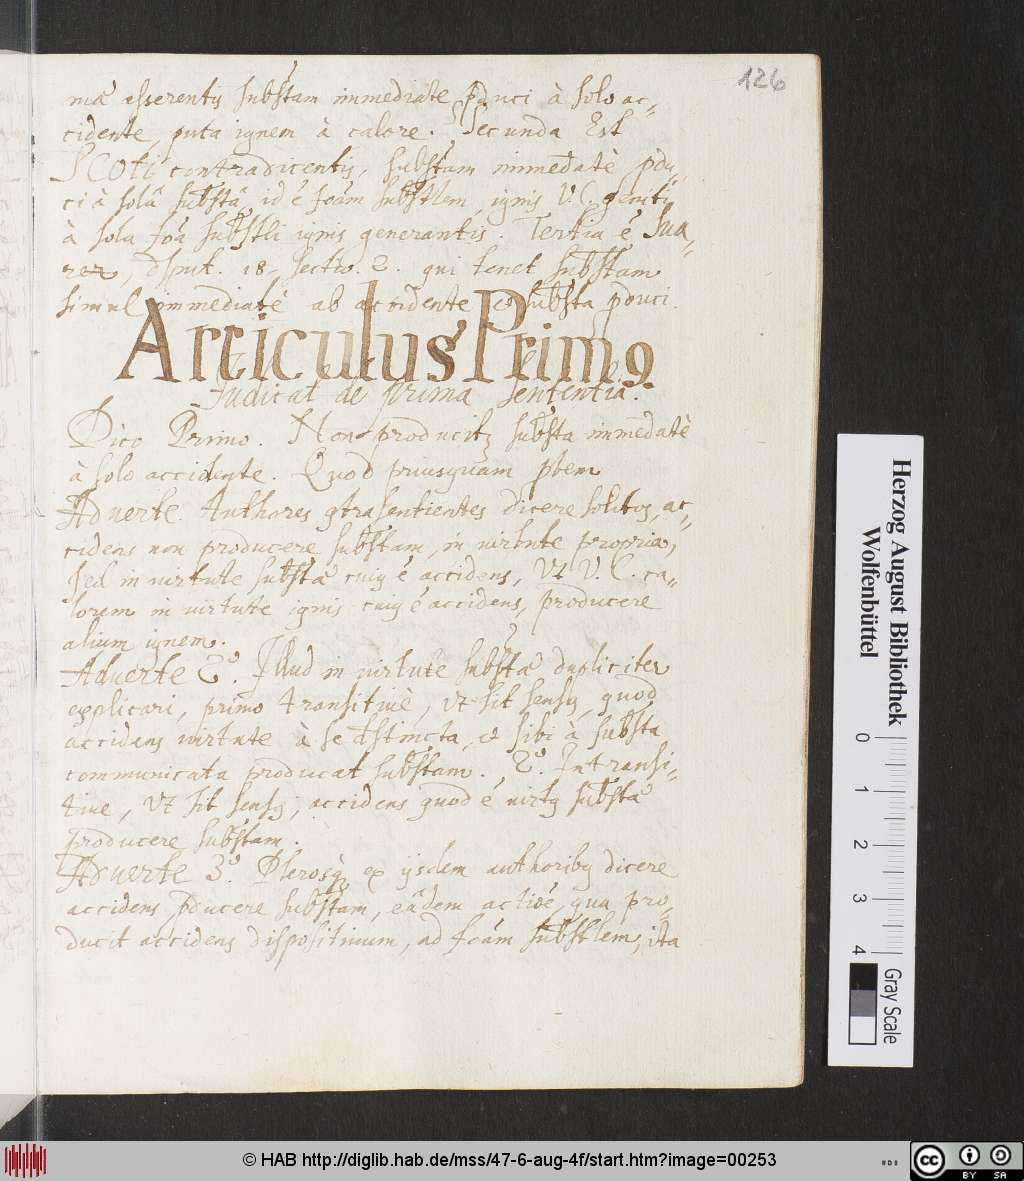 126
mae asserentis substam immediate pduci à solo ac-
cidente, puta ignem à calore. Secunda Est
SCOTI contradicentis, substam immedatè pdu-
ci à solâ substâ, id é foam substlem, ignis V.C. geniti
à sola foâ substli ignis generantis. Tertia é Sua-
rez, dsput. 18. sectio. 2. qui tenet substam
simul immediatè ab accidente et substa pduci.
Articulus Prim9.
Judicat de prima sententia.
Dico Primo. Non producitz substa immedatè
à solo accidente. Quod priusquam pbem
Aduerte. Authores 9trasentientes dicere solitos, ac-
cidens non producere substam, in uirtute propria,
sed in uirtute substae cui9 é accidens, Vt V.C. ca-
lorem in uirtute ignis cui9 é accidens, producere
alium ignem.
Aduerte 2º. Illud in uirtute substae dupliciter
explicari, primo transitiuè, Vt sit sens9, quod
accidens uirtute à se dstincta, et sibi à substa
communicata producat substam. 2º. Intransi-
tiue, Vt sit sens9, accidens quod é uirt9 substae
producere substam.
Aduerte 3º. Plerosq3 ex ijsdem authorib9 dicere
accidens pducere substam, eâdem actioé, qua pro-
ducit accidens dispositiuum, ad foam substlem, ita
Herzog August Bibliothek
Wolfenbüttel
0 1 2 3 4
Gray Scale
© HAB http://diglib.hab.de/mss/47-6-aug-4f/start.htm?image=00253
cc BY SA